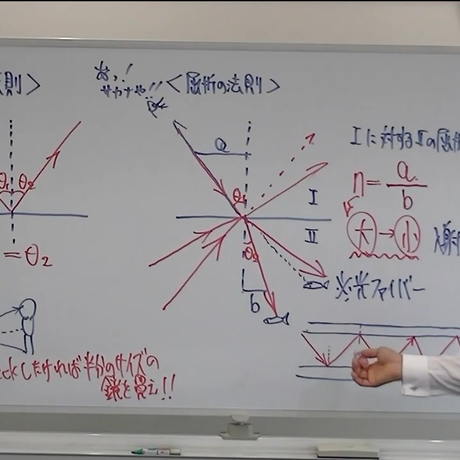 則〉
〈屈折の法則〉
あっ!
サカナや!!
a
θ₁ θ₂
θ₁
I
II
θ₂
b
= θ₂
Iに対するIIの屈折
n = a/b
大→小
※光ファイバー
しだければ半分のサイズの
鏡を買え!!